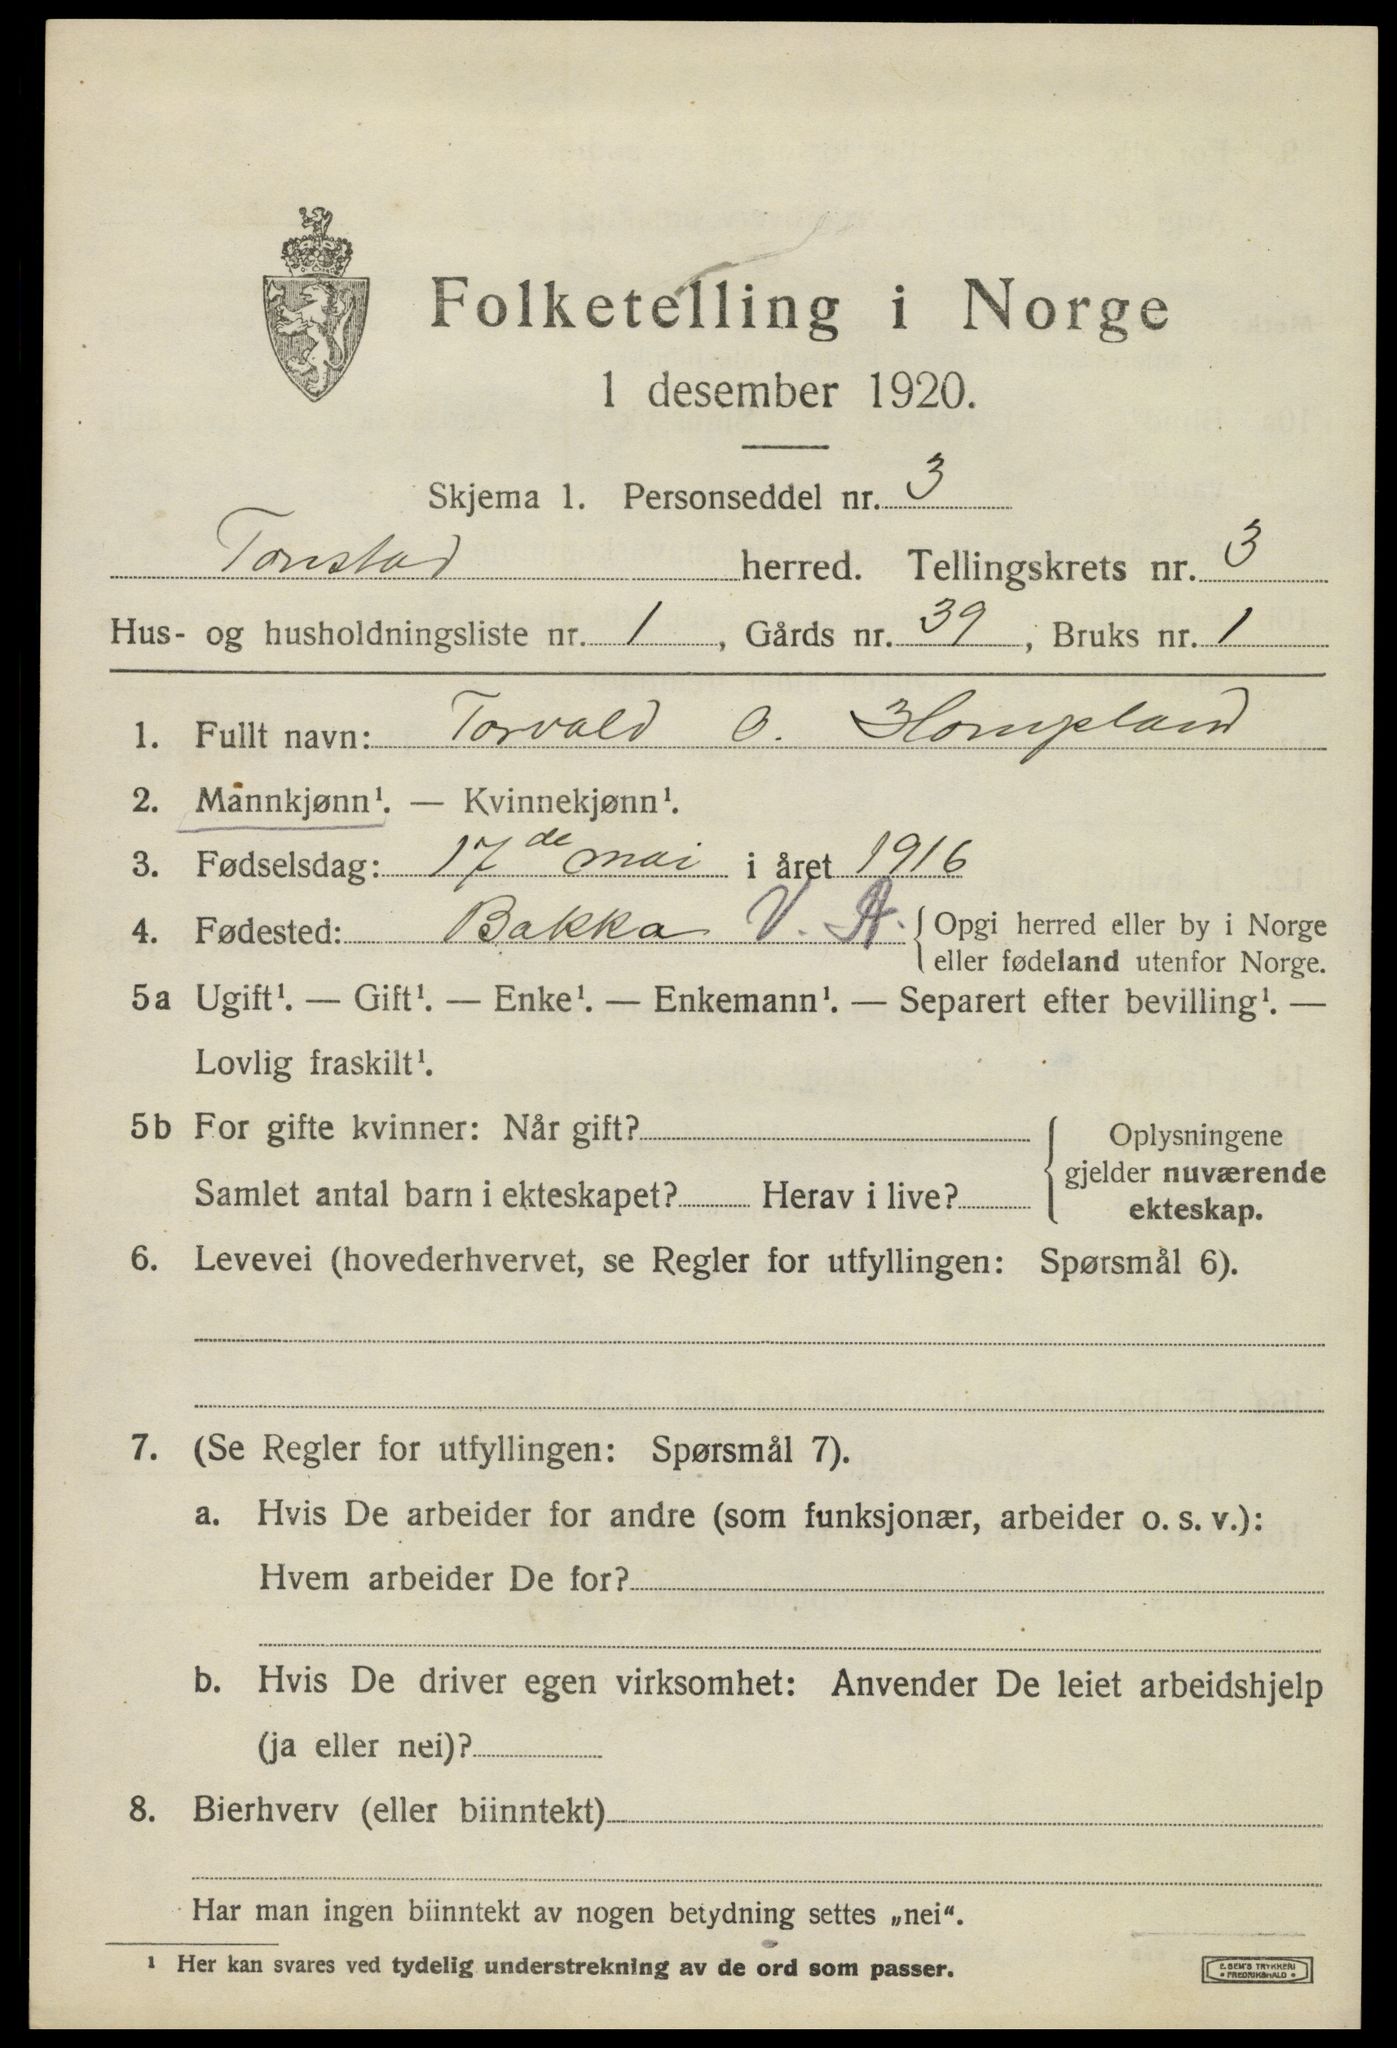 Folketelling i Norge
1 desember 1920.
Skjema 1. Personseddel nr. 3
Tonstad herred. Tellingskrets nr. 3
Hus- og husholdningsliste nr. 1, Gårds nr. 39, Bruks nr. 1
1. Fullt navn: Torvald O. Hompland
2. Mannkjønn¹. — Kvinnekjønn¹.
3. Fødselsdag: 17de mai i året 1916
4. Fødested: Bakka V. A. { Opgi herred eller by i Norge
eller fødeland utenfor Norge.
5a Ugift¹. — Gift¹. — Enke¹. — Enkemann¹. — Separert efter bevilling¹. —
Lovlig fraskilt¹.
5b For gifte kvinner: Når gift?
Samlet antal barn i ekteskapet? Herav i live?
Oplysningene
gjelder nuværende
ekteskap.
6. Levevei (hovederhvervet, se Regler for utfyllingen: Spørsmål 6).
7. (Se Regler for utfyllingen: Spørsmål 7).
a. Hvis De arbeider for andre (som funksjonær, arbeider o. s. v.):
Hvem arbeider De for?
b. Hvis De driver egen virksomhet: Anvender De leiet arbeidshjelp
(ja eller nei)?
8. Bierhverv (eller biinntekt)
Har man ingen biinntekt av nogen betydning settes „nei“.
¹ Her kan svares ved tydelig understrekning av de ord som passer.
E. SEM'S TRYKKERI
• FREDRIKSHALD •